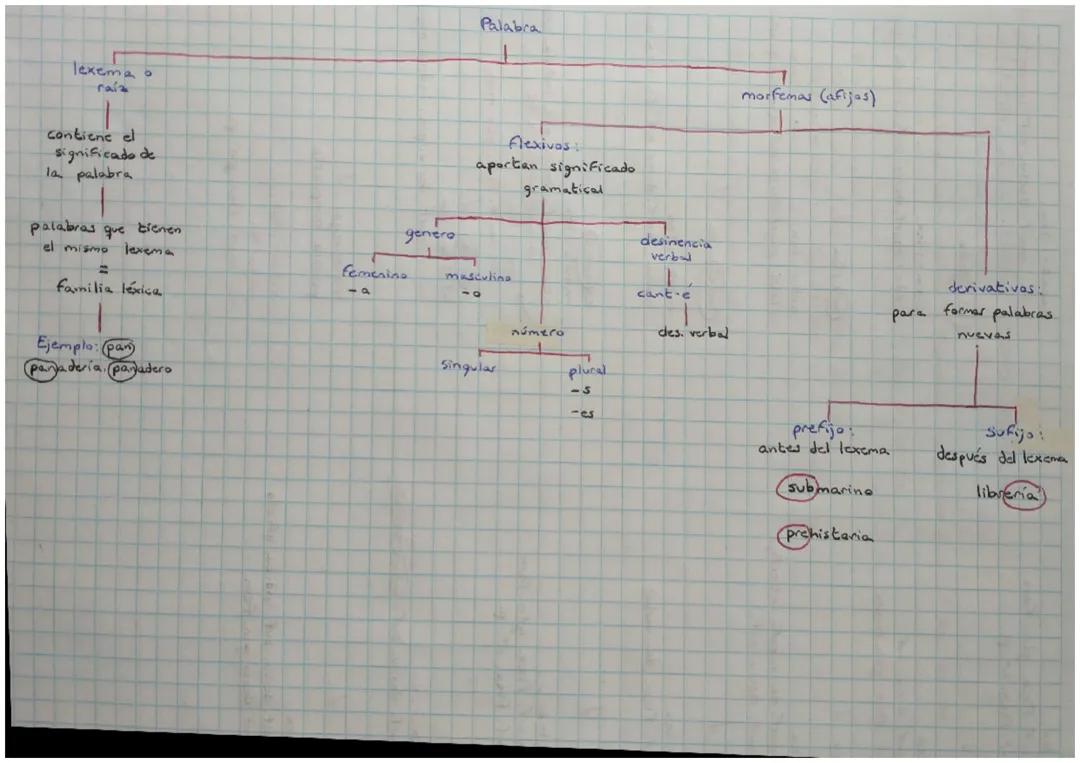 Palabra
lexema o
raíz
contiene el
significado de
la palabra
palabras que tienen
el mismo lexema
=
familia léxica
Ejemplo: pan
panadería, panadero
morfemas (afijos)
flexivos:
aportan significado
gramatical
genero
femenino
-a
masculino
-o
número
singular
plural
-s
-es
desinencia
verbal
cant-é
des. verbal
derivativos:
para formar palabras
nuevas
prefijo:
antes del lexema
submarino
prehistoria
sufijo:
después del lexema
librería